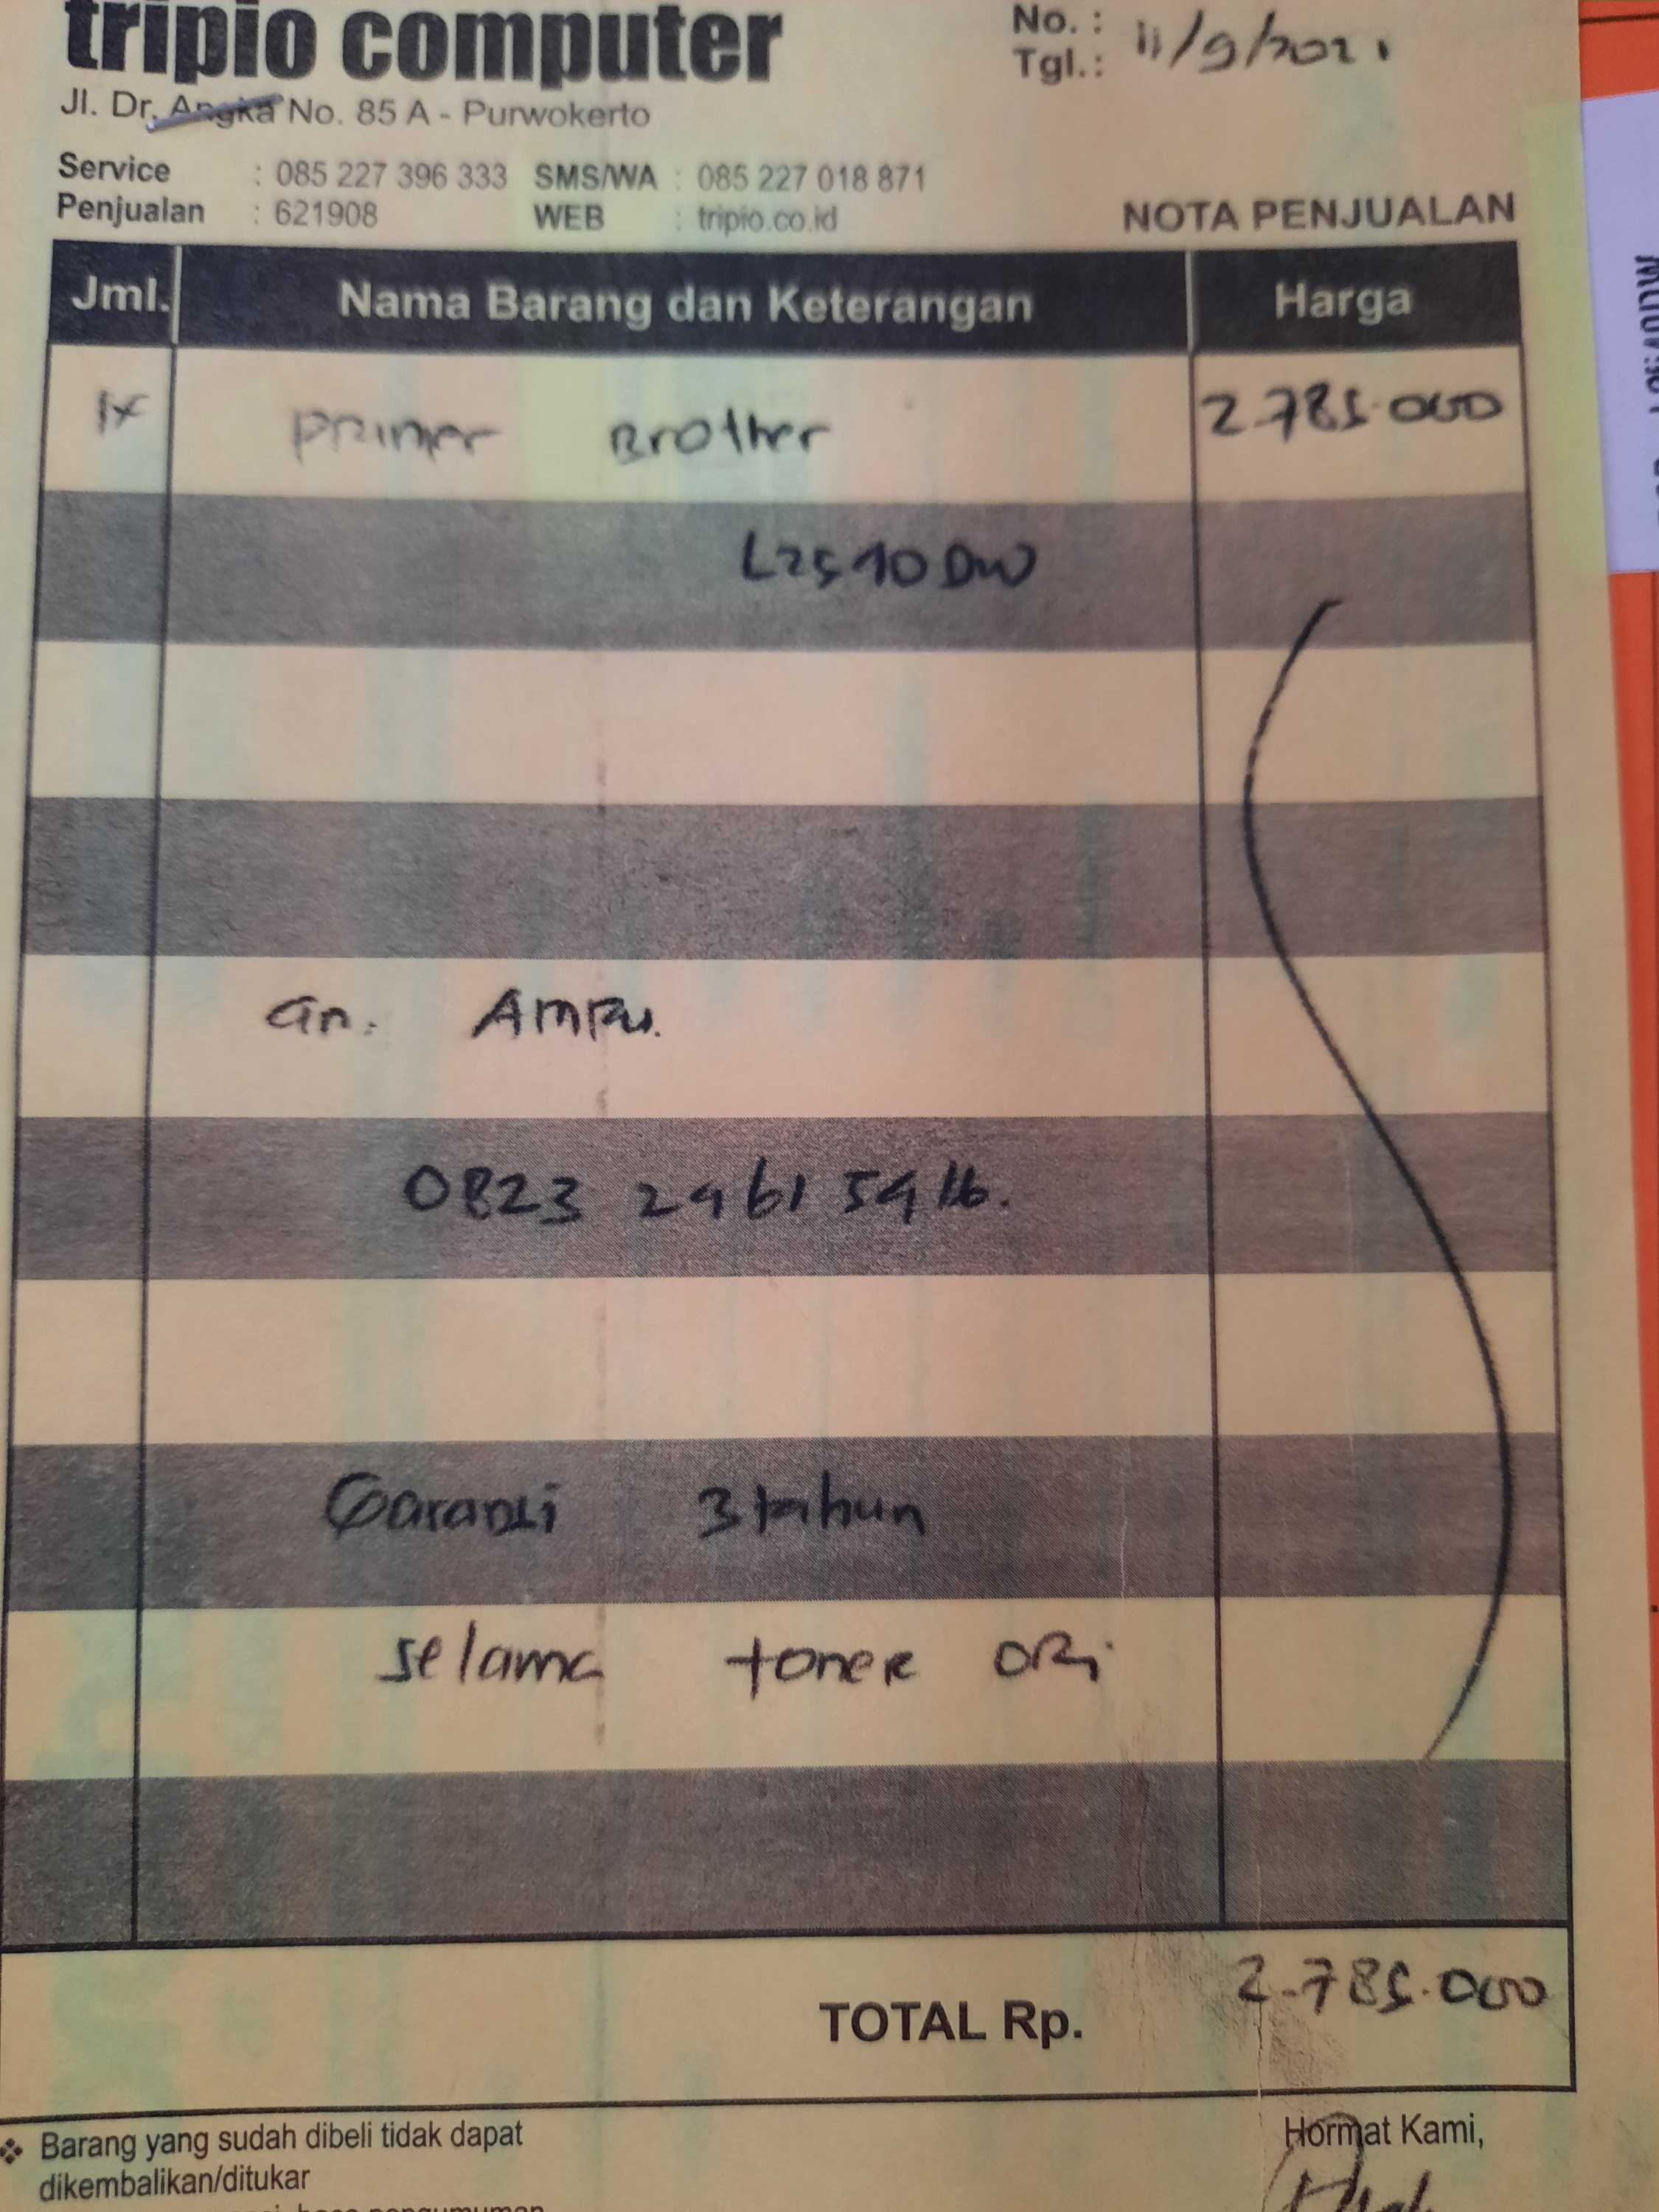 tripio computer
No. :
Tgl.: 11/9/2021
Jl. Dr. Angka No. 85 A - Purwokerto
Service : 085 227 396 333 SMS/WA : 085 227 018 871
Penjualan : 621908 WEB : tripio.co.id
NOTA PENJUALAN
Jml. Nama Barang dan Keterangan Harga
1x Printer Brother 2.785.000
L2540DW
an.
0823 2961 5916.
Garansi 3 tahun
selama toner ori
TOTAL Rp. 2.785.000
Barang yang sudah dibeli tidak dapat
dikembalikan/ditukar
Hormat Kami,